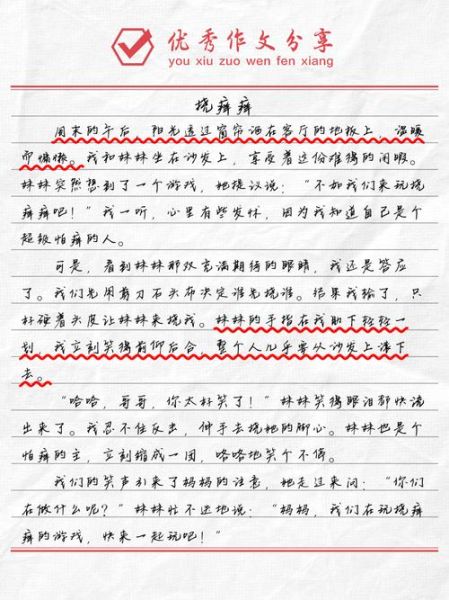 优秀作文分享
you xiu zuo wen fen xiang
挠痒痒
周末的午后，阳光透过窗帘洒在客厅的地板上，温暖
而慵懒。我和妹妹坐在沙发上，享受着这份难得的闲暇。
妹妹突然想到了一个游戏，她提议说：“不如我们来玩挠
痒痒吧！”我一听，心里有些发怵，因为我知道自己是个
超级怕痒的人。
可是，看到妹妹那双充满期待的眼睛，我还是答应
了。我们先用剪刀石头布决定谁先挠谁。结果我输了，只
好硬着头皮让妹妹来挠我。妹妹的手指在我肋下轻轻一
划，我立刻笑得前仰后合，整个人几乎要从沙发上滑下
去。
“哈哈，哥哥，你太好笑了！”妹妹笑得眼泪都快流
出来了。我忍不住反击，伸手去挠她的脚心。妹妹也是个
怕痒的主，立刻缩成一团，咯咯地笑个不停。
我们的笑声引来了妈妈的注意，她走过来问：“你们
在做什么呢？”妹妹忙不迭地说：“妈妈，我们在玩挠痒
痒的游戏，快来一起玩吧！”